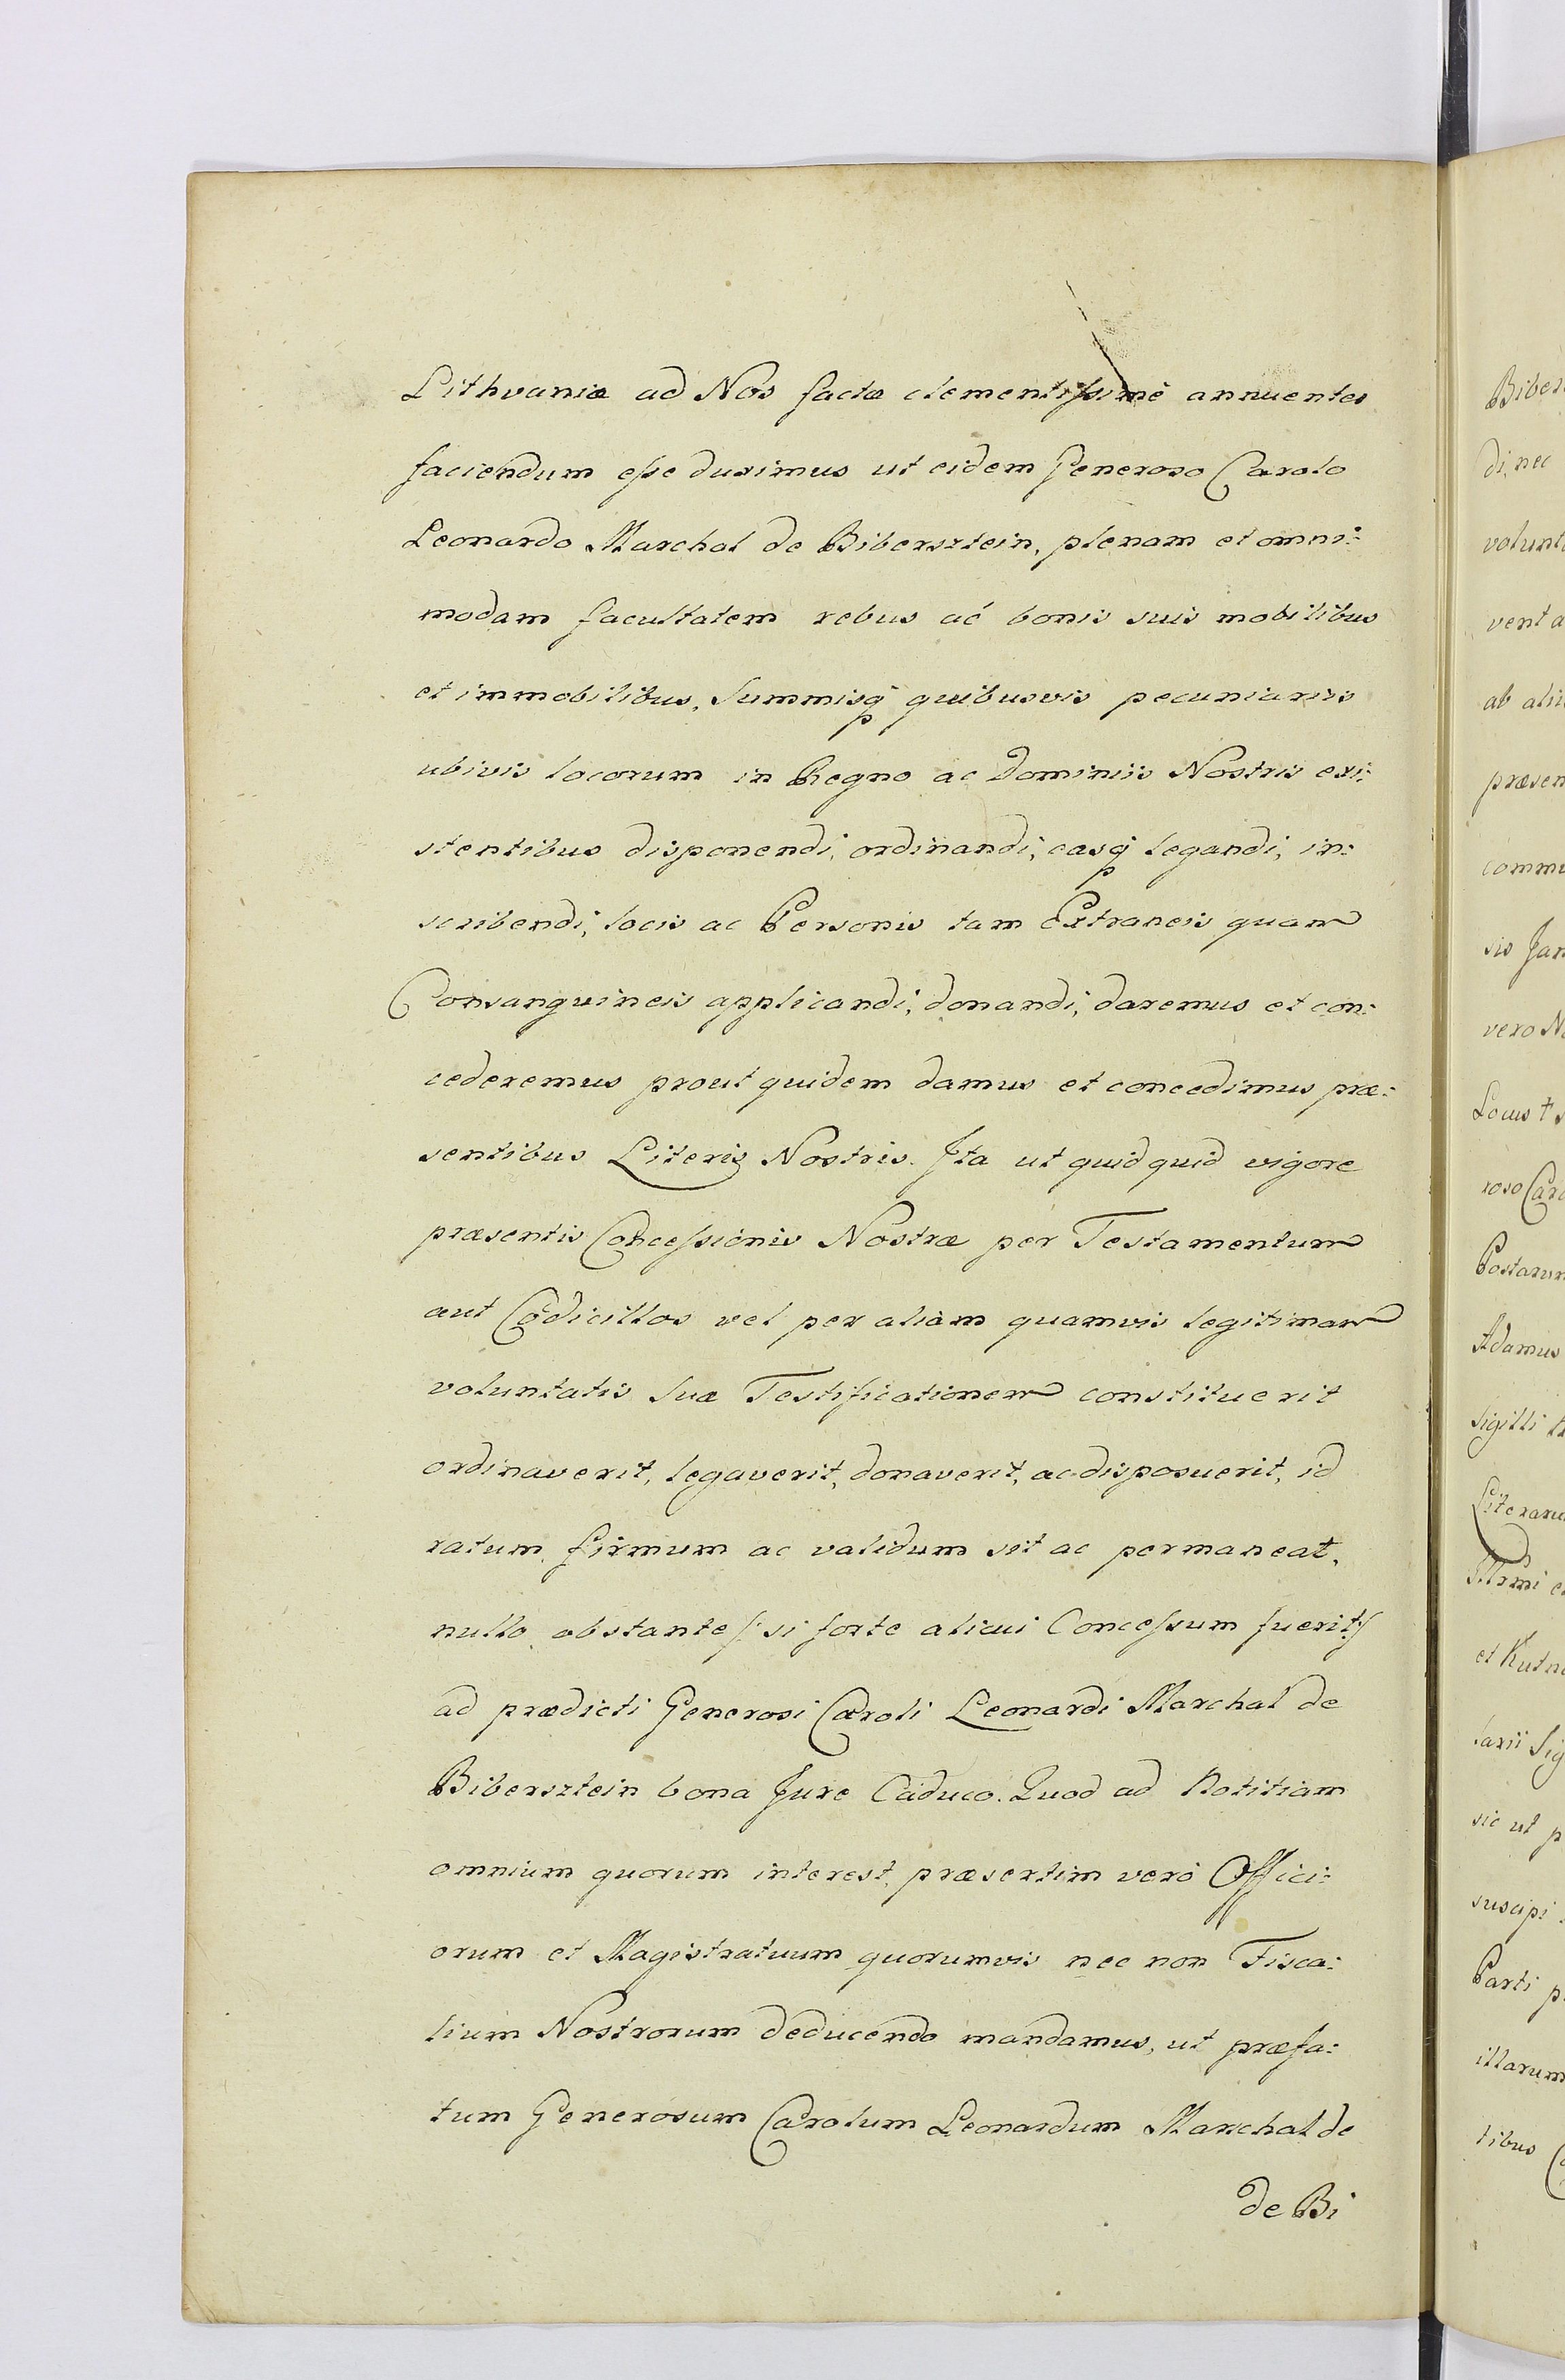 Lithvaniæ ad Nos factæ clementissimè annuentes
faciendum esse duximus ut eidem Generoso Carolo
Leonardo Marchal de Bibersztein, plenam et omni:
modam facultatem rebus ac bonis suis mobilibus
et immobilibus, Summisq quibusvis pecuniariis
ubivis locorum in Regno ac Dominiis Nostris exi:
stentibus disponendi, ordinandi, easq legandi, in:
scribendi, locis ac Personis tam Extraneis quam
Consangvineis applicandi, donandi, daremus et con:
cederemus prout quidem damus et concedimus præ:
sentibus Literis Nostris. Ita ut quidquid vigore
præsentis Concessionis Nostræ per Testamentum
aut Codicillos vel per aliam quamvis legitimam
voluntatis Suæ Testificationem constituerit
ordinaverit, legaverit, donaverit, ac disposuerit, id
ratum, firmum ac validum sit ac permaneat,
nullo obstante /: si forte alicui Concessum fuerit :/
ad prædicti Generosi Caroli Leonardi Marchal de
Bibersztein bona Jure Caduco. Quod ad Notitiam
omnium quorum interest, præsertim verò Offici:
orum et Magistratuum quorumvis nec non Fisca:
lium Nostrorum deducendo mandamus, ut præfa:
tum Generosum Carolum Leonardum Marchal de
de Bi
Biber
di, nec
volunt
vent a
ab alii
præsen
commu
sis Jan
vero N
Locus † s
roso Car
Postarum
Adamus
Sigilli
Literaru
Illrmi e
et Kutn
larii Sig
sic ut p
suscipi
Parti p
illarum
tibus C